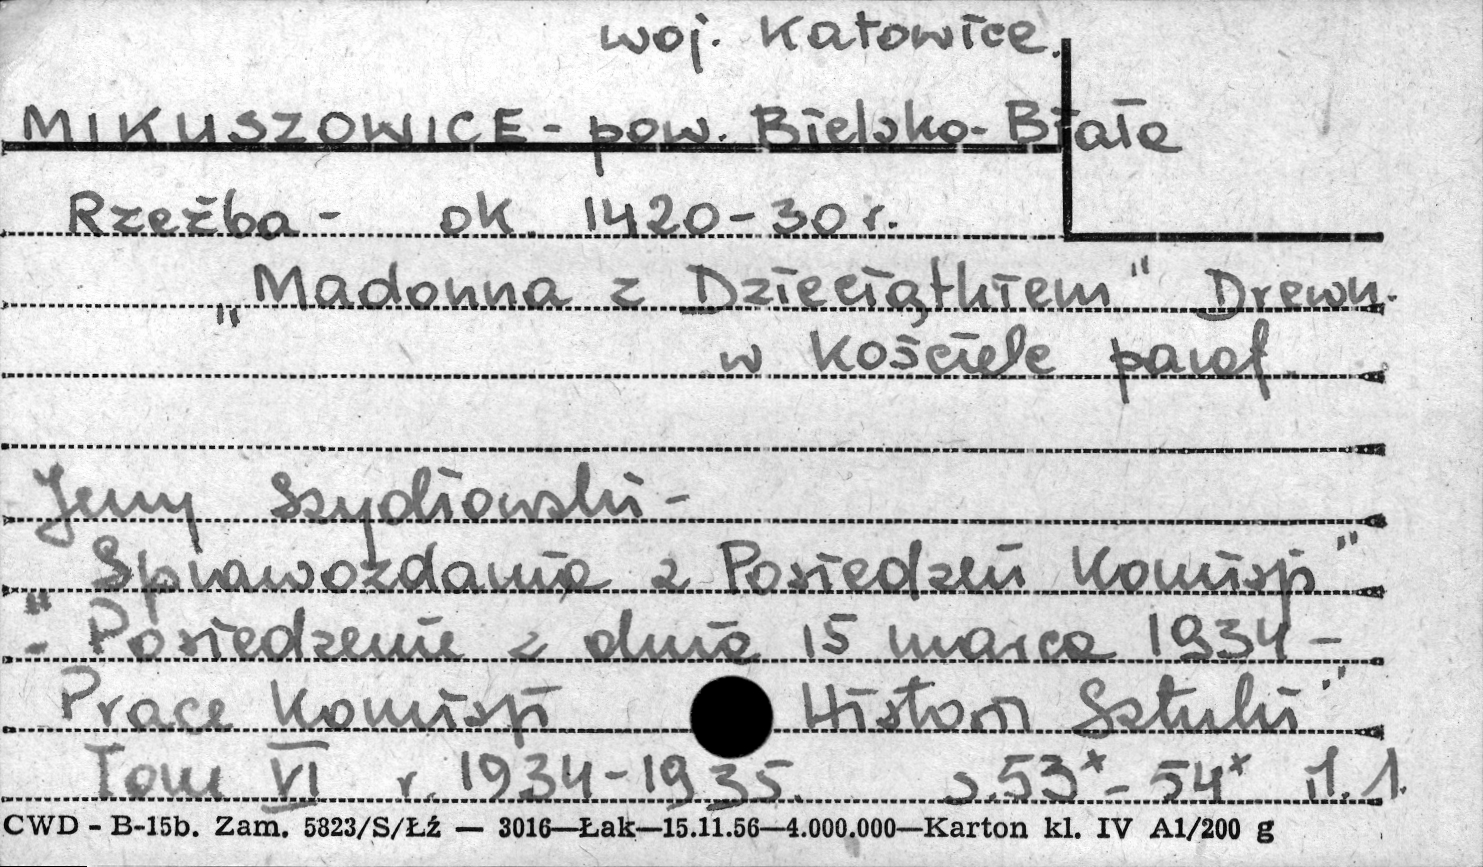 woj. Katowice.
MIKUSZOWICE - pow. Bielsko-Biała
Rzeźba - ok. 1420-30 r.
"Madonna z Dzieciątkiem" Drewn.
w Kościele paraf.
Jerzy Szydłowski -
"Sprawozdania z Posiedzeń Komisji"
- Posiedzenie z dnia 15 marca 1934 -
"Prace Komisji Historii Sztuki"
Tom VI r. 1934-1935. s. 53*- 54* il. 1.
CWD - B-15b. Zam. 5823/S/Łź — 3016—Łak—15.11.56—4.000.000—Karton kl. IV A1/200 g